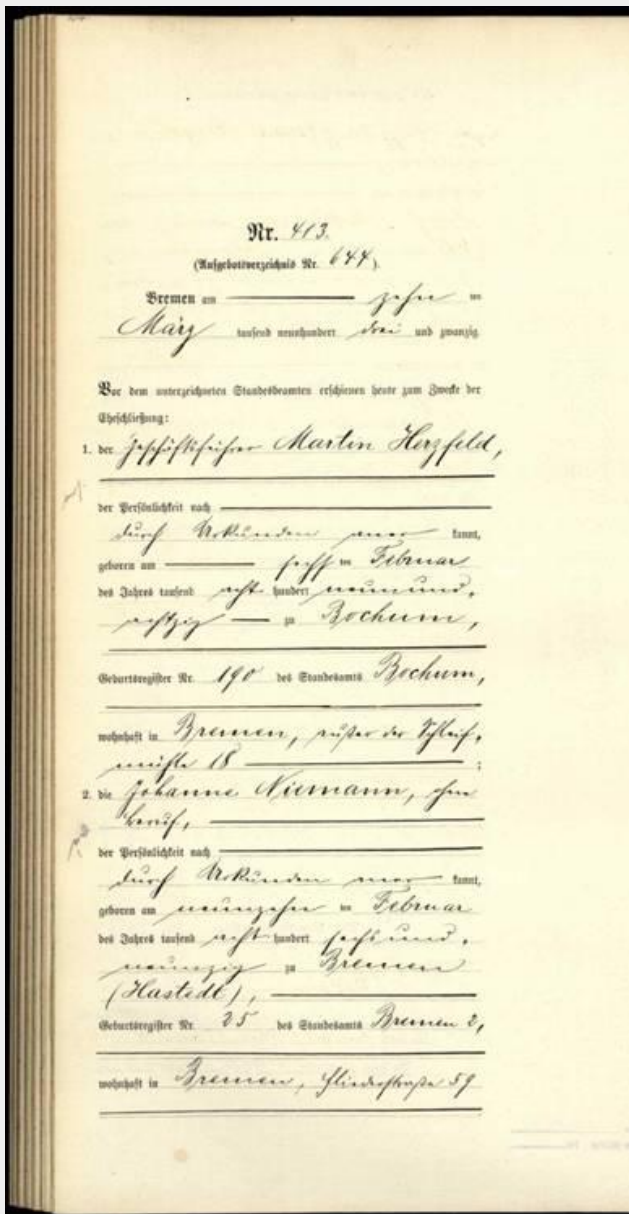 Nr. 413.
(Aufgebotsverzeichnis Nr. 644).
Bremen am zehn ten
März tausend neunhundert drei und zwanzig.
Vor dem unterzeichneten Standesbeamten erschienen heute zum Zwecke der
Eheschließung:
1. der Geschäftsführer Martin Herzfeld,
der Persönlichkeit nach
durch Urkunden aner kannt,
geboren am sechs ten Februar
des Jahres tausend acht hundert neunund-
achtzig zu Bochum,
Geburtsregister Nr. 190 des Standesamts Bochum,
wohnhaft in Bremen, außer der Schleif-
mühle 18 ;
2. die Johanne Niemann, ohne
Beruf,
der Persönlichkeit nach
durch Urkunden aner kannt,
geboren am neunzehn ten Februar
des Jahres tausend acht hundert sechsund-
neunzig zu Bremen
(Hastedt),
Geburtsregister Nr. 25 des Standesamts Bremen 2,
wohnhaft in Bremen, Fliederstraße 59